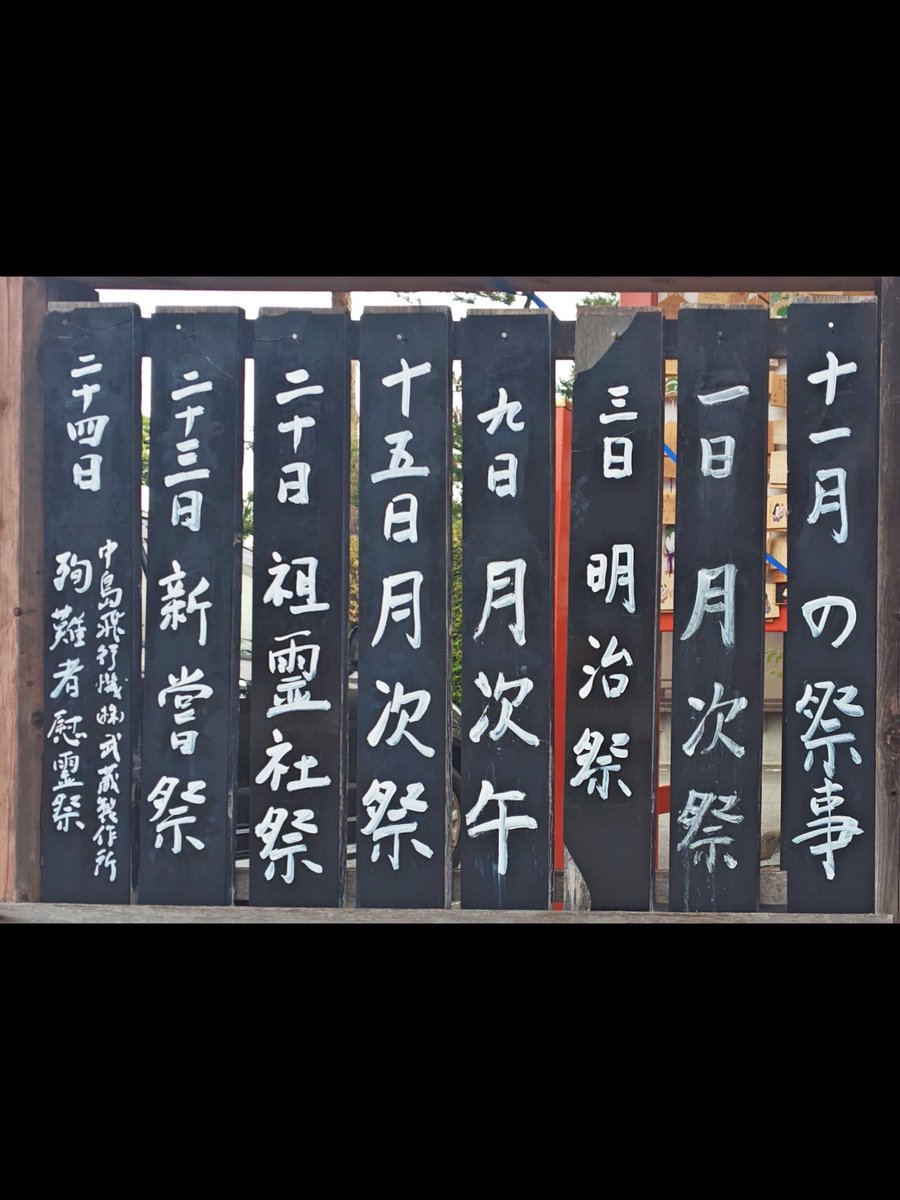 十一月の祭事
一日 月次祭
三日 明治祭
九日 月次午
十五日 月次祭
二十日 祖霊社祭
二十三日 新嘗祭
二十四日
中島飛行機(株)武蔵製作所
殉難者慰霊祭